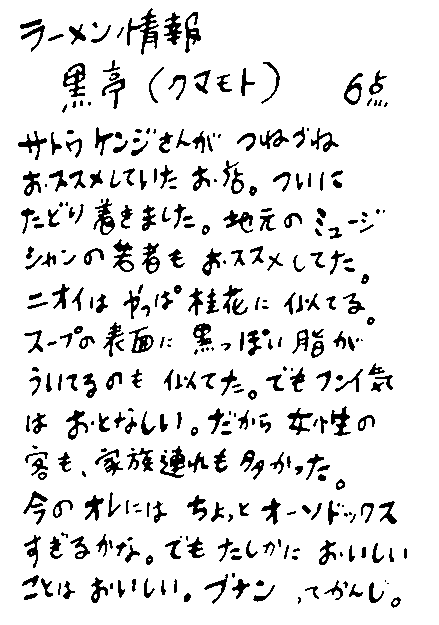 ラーメン情報
黒亭(クマモト) 6点
サトウケンジさんが つねづね
おススメしていたお店。ついに
たどり着きました。地元のミュージ
シャンの若者もおススメしてた。
ニオイは やっぱ桂花に似てる。
スープの表面に黒っぽい脂が
ういてるのも似てた。でもフンイ気
はおとなしい。だから女性の
客も、家族連れも多かった。
今のオレには ちょっとオーソドックス
すぎるかな。でもたしかにおいしい
ことはおいしい。ブナンってかんじ。